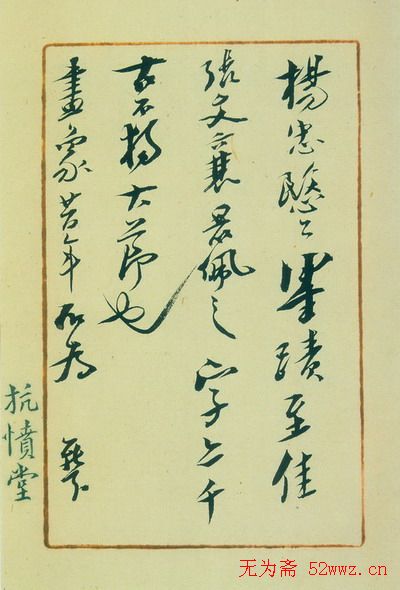 楊忠愍公墨蹟至佳
張文襄最佩之字亦千
古不獨大節也
畫象昔年所為
抗憤堂
无为斋 52wwz.cn